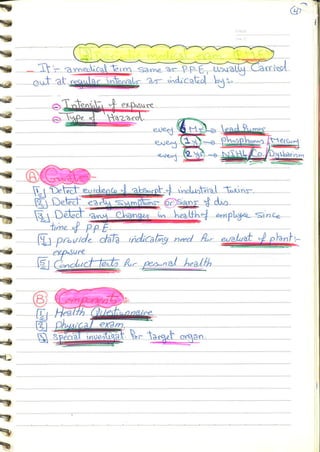 It :- a medical term same as P.P.E, usually Carried
out at regular intervals as indicated by:-
Intensity of exposure
Type of Hazard
every 6 Mo → lead fumes
every 1 yr → phosphorus / Mercury
every 2 yr → NIHL / Co / Dysbarism
A Goals
1 Detect evidence of absorpt of industrial Toxins
2 Detect early symptoms or signs of dis
3 Detect any changes in health of employee since
time of P.P.E
4 provide data indicating need for evaluat of plant :-
exposure
5 Conduct tests for personal health
B Components
1 Health Questionnaire
2 physical exam
3 special investigat for target organ.